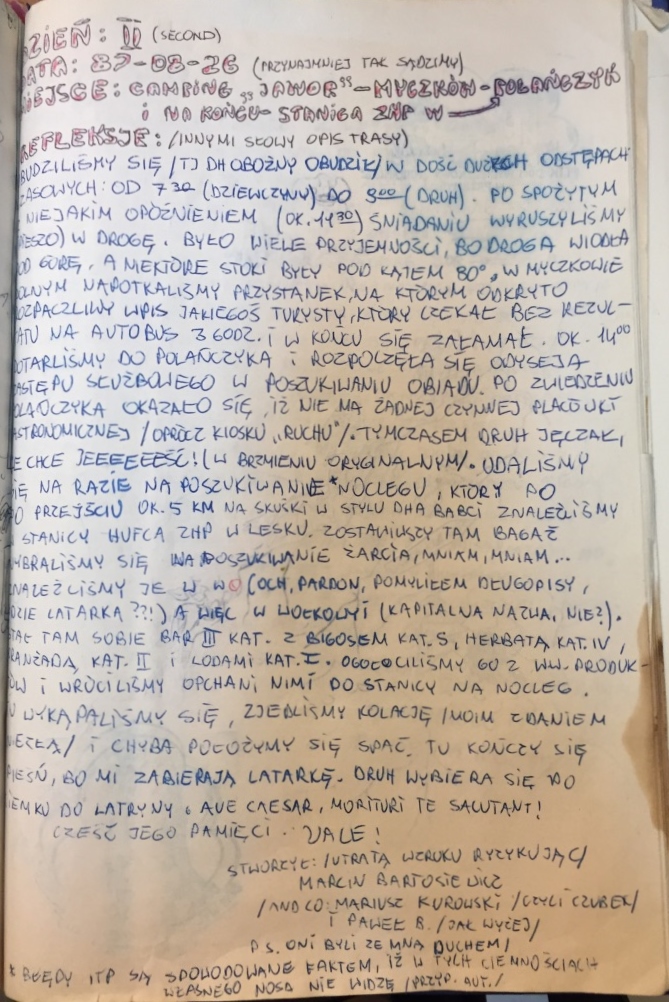 DZIEŃ: II (SECOND)
DATA: 87-08-26 (PRZYNAJMNIEJ TAK SĄDZIMY)
MIEJSCE: CAMPING „JAWOR” - MYCZKÓW - POLAŃCZYK
I NA KOŃCU - STANICA ZHP W
REFLEKSJE: /INNYMI SŁOWY OPIS TRASY)
OBUDZILIŚMY SIĘ /TJ DH OBOŹNY OBUDZIŁ/ W DOŚĆ DUŻYCH ODSTĘPACH
CZASOWYCH: OD 7 30 (DZIEWCZYNY) DO 9 00 (DRUH). PO SPOŻYTYM
Z NIEJAKIM OPÓŹNIENIEM (OK. 11 30) ŚNIADANIU WYRUSZYLIŚMY
(PIESZO) W DROGĘ. BYŁO WIELE PRZYJEMNOŚCI, BO DROGA WIODŁA
POD GÓRĘ, A NIEKTÓRE STOKI BYŁY POD KĄTEM 80°, W MYCZKOWIE
DOLNYM NAPOTKALIŚMY PRZYSTANEK, NA KTÓRYM ODKRYTO
ROZPACZLIWY WPIS JAKIEGOŚ TURYSTY, KTÓRY CZEKAŁ BEZ REZUL-
TATU NA AUTOBUS 3 GODZ. I W KOŃCU SIĘ ZAŁAMAŁ. OK. 14 00
DOTARLIŚMY DO POLAŃCZYKA I ROZPOCZĘŁA SIĘ ODYSEJA
ZASTĘPU SŁUŻBOWEGO W POSZUKIWANIU OBIADU. PO ZWIEDZENIU
POLAŃCZYKA OKAZAŁO SIĘ, IŻ NIE MA ŻADNEJ CZYNNEJ PLACÓWKI
GASTRONOMICZNEJ /OPRÓCZ KIOSKU „RUCHU”/. TYMCZASEM DRUH JĘCZAŁ,
ŻE CHCE JEEEEEEŚĆ! (W BRZMIENIU ORYGINALNYM/. UDALIŚMY
SIĘ NA RAZIE NA POSZUKIWANIE* NOCLEGU, KTÓRY PO
PO PRZEJŚCIU OK. 5 KM NA SKUŚKI W STYLU DHA BABCI ZNALEŹLIŚMY
W STANICY HUFCA ZHP W LESKU. ZOSTAWIWSZY TAM BAGAŻ
WYBRALIŚMY SIĘ NA POSZUKIWANIE ŻARCIA, MNIAM, MNIAM...
ZNALEŹLIŚMY JE W WO (OCH, PARDON, POMYLIŁEM DŁUGOPISY,
GDZIE LATARKA ??!) A WIĘC W WOŁKOWYI (KAPITALNA NAZWA, NIE?).
STAŁ TAM SOBIE BAR III KAT. Z BIGOSEM KAT. S, HERBATĄ KAT. IV,
ORANŻADĄ KAT. II I LODAMI KAT. I. OGOŁOCILIŚMY GO Z WW. PRODUK-
TÓW I WRÓCILIŚMY OPCHANI NIMI DO STANICY NA NOCLEG.
TU WYKĄPALIŚMY SIĘ, ZJEDLIŚMY KOLACJĘ /MOIM ZDANIEM
/ I CHYBA POŁOŻYMY SIĘ SPAĆ. TU KOŃCZY SIĘ
PIEŚŃ, BO MI ZABIERAJĄ LATARKĘ. DRUH WYBIERA SIĘ PO
CIEMKU DO LATRYNY. AVE CAESAR, MORITURI TE SALUTANT!
CZEŚĆ JEGO PAMIĘCI. VALE!
STWORZYŁ: /UTRATĄ WZROKU RYZYKUJĄC/
MARCIN BARTOSIEWICZ
/AND CO: MARIUSZ KUROWSKI /CZYLI CZUBEK/
I PAWEŁ B. /JAK WYŻEJ/
P.S. ONI BYLI ZE MNĄ DUCHEM/
* BŁĘDY ITP SĄ SPOWODOWANE FAKTEM, IŻ W TYCH CIEMNOŚCIACH
WŁASNEGO NOSA NIE WIDZĘ /PRZYP. AUT./